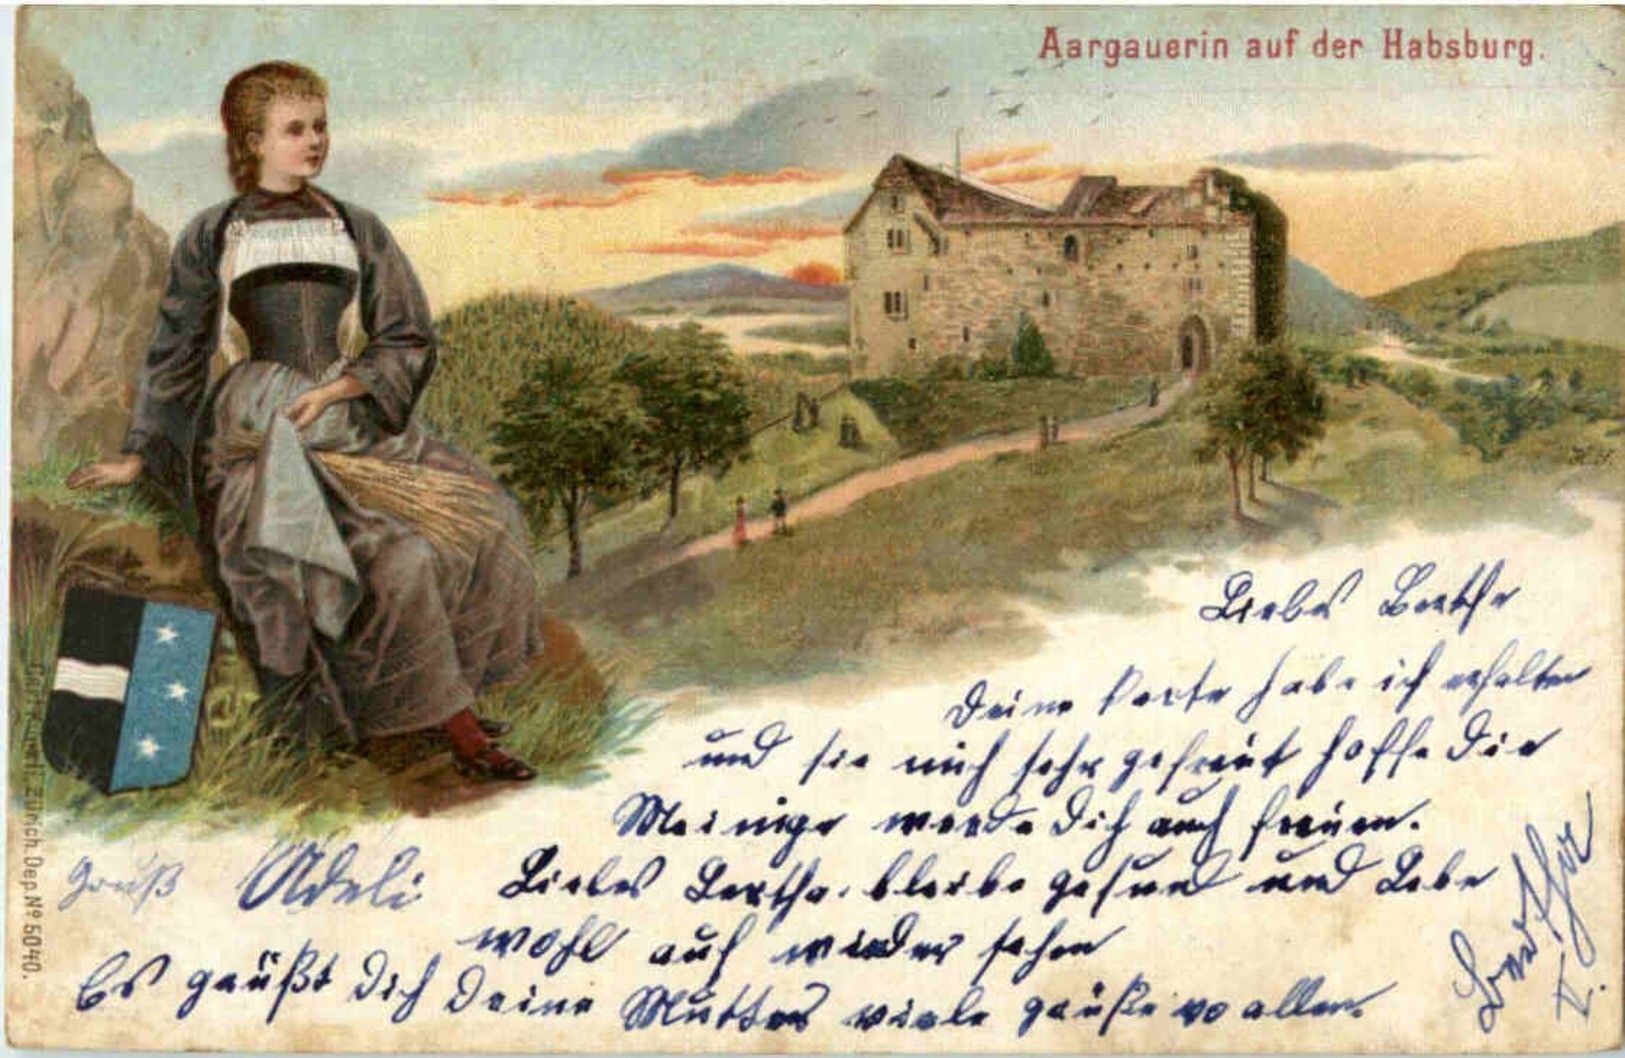 Aargauerin auf der Habsburg.
Liebes Berthe
Deine Karte habe ich erhalten
und sie mich sehr gefreut hoffe die
Meinige werde Dich auch freuen.
Liebes Bertha. bleibe gesund und Lebe
wohl auf wieder sehen
Gruß Adeli
Es grüßt Dich Deine Mutter viele grüße vo allen.
Zürich. Dep. Nº 5040.